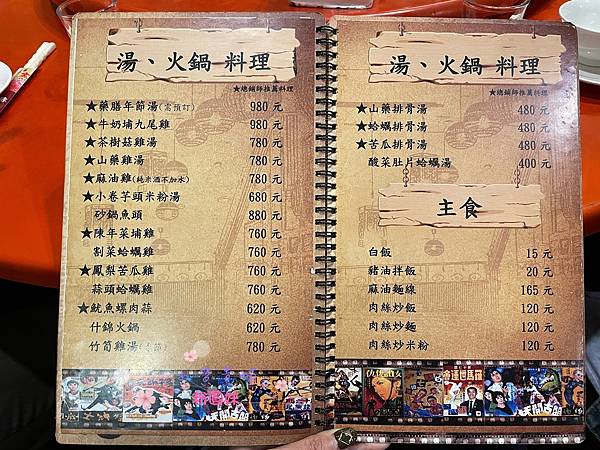 湯、火鍋 料理
★總鋪師推薦料理
★藥膳年節湯(需預訂) 980 元
★牛奶埔九尾雞 980 元
★茶樹菇雞湯 780 元
★山藥雞湯 780 元
★麻油雞(純米酒不加水) 780 元
★小卷芋頭米粉湯 680 元
砂鍋魚頭 880 元
★陳年菜埔雞 760 元
割菜蛤蠣雞 760 元
★鳳梨苦瓜雞 760 元
蒜頭蛤蠣雞 760 元
★魷魚螺肉蒜 620 元
什錦火鍋 620 元
竹筍雞湯 780 元
湯、火鍋 料理
★總鋪師推薦料理
★山藥排骨湯 480 元
★蛤蠣排骨湯 480 元
★苦瓜排骨湯 480 元
酸菜肚片蛤蠣湯 400 元
主食
白飯 15 元
豬油拌飯 20 元
麻油麵線 165 元
肉絲炒飯 120 元
肉絲炒麵 120 元
肉絲炒米粉 120 元